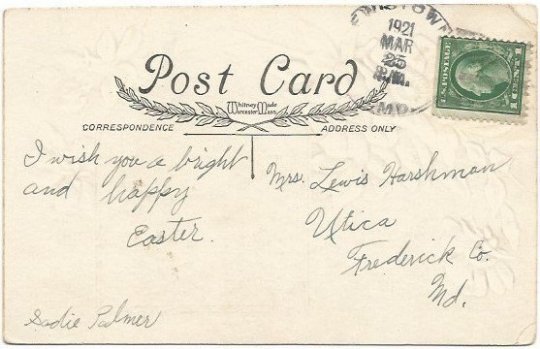 1921
MAR
25
P.M.
MD.
U.S. POSTAGE
1 CENT 1
Post Card
Whitney Made
Worcester Mass.
CORRESPONDENCE
ADDRESS ONLY
I wish you a bright
and happy
Easter.
Sadie Palmer
Mrs. Lewis Harshman
Utica
Frederick Co.
Md.